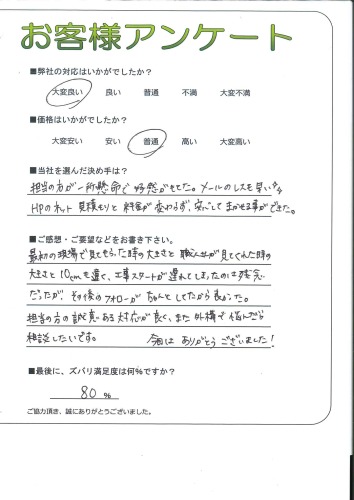 お客様アンケート
■弊社の対応はいかがでしたか？
大変良い 良い 普通 不満 大変不満
■価格はいかがでしたか？
大変安い 安い 普通 高い 大変高い
■当社を選んだ決め手は？
担当の方が一所懸命で 好感がもてた。メールのレスも早いし
HPのネット見積もりと 料金が 変わらず、安心して まかせる事ができた。
■ご感想・ご要望などをお書き下さい。
最初の現場で見てもらった時の大きさと 職人さんが見てくれた時の
大きさと 10cmも違く、工事スタートが遅れてしまったのは残念
だったが その後のフォローが ちゃんと してたから良かった。
担当の方の誠意ある対応が良く、また外構で悩んだら
相談したいです。 今回は ありがとう ございました！
■最後に、ズバリ満足度は何％ですか？
80 %
ご協力頂き、誠にありがとうございました。